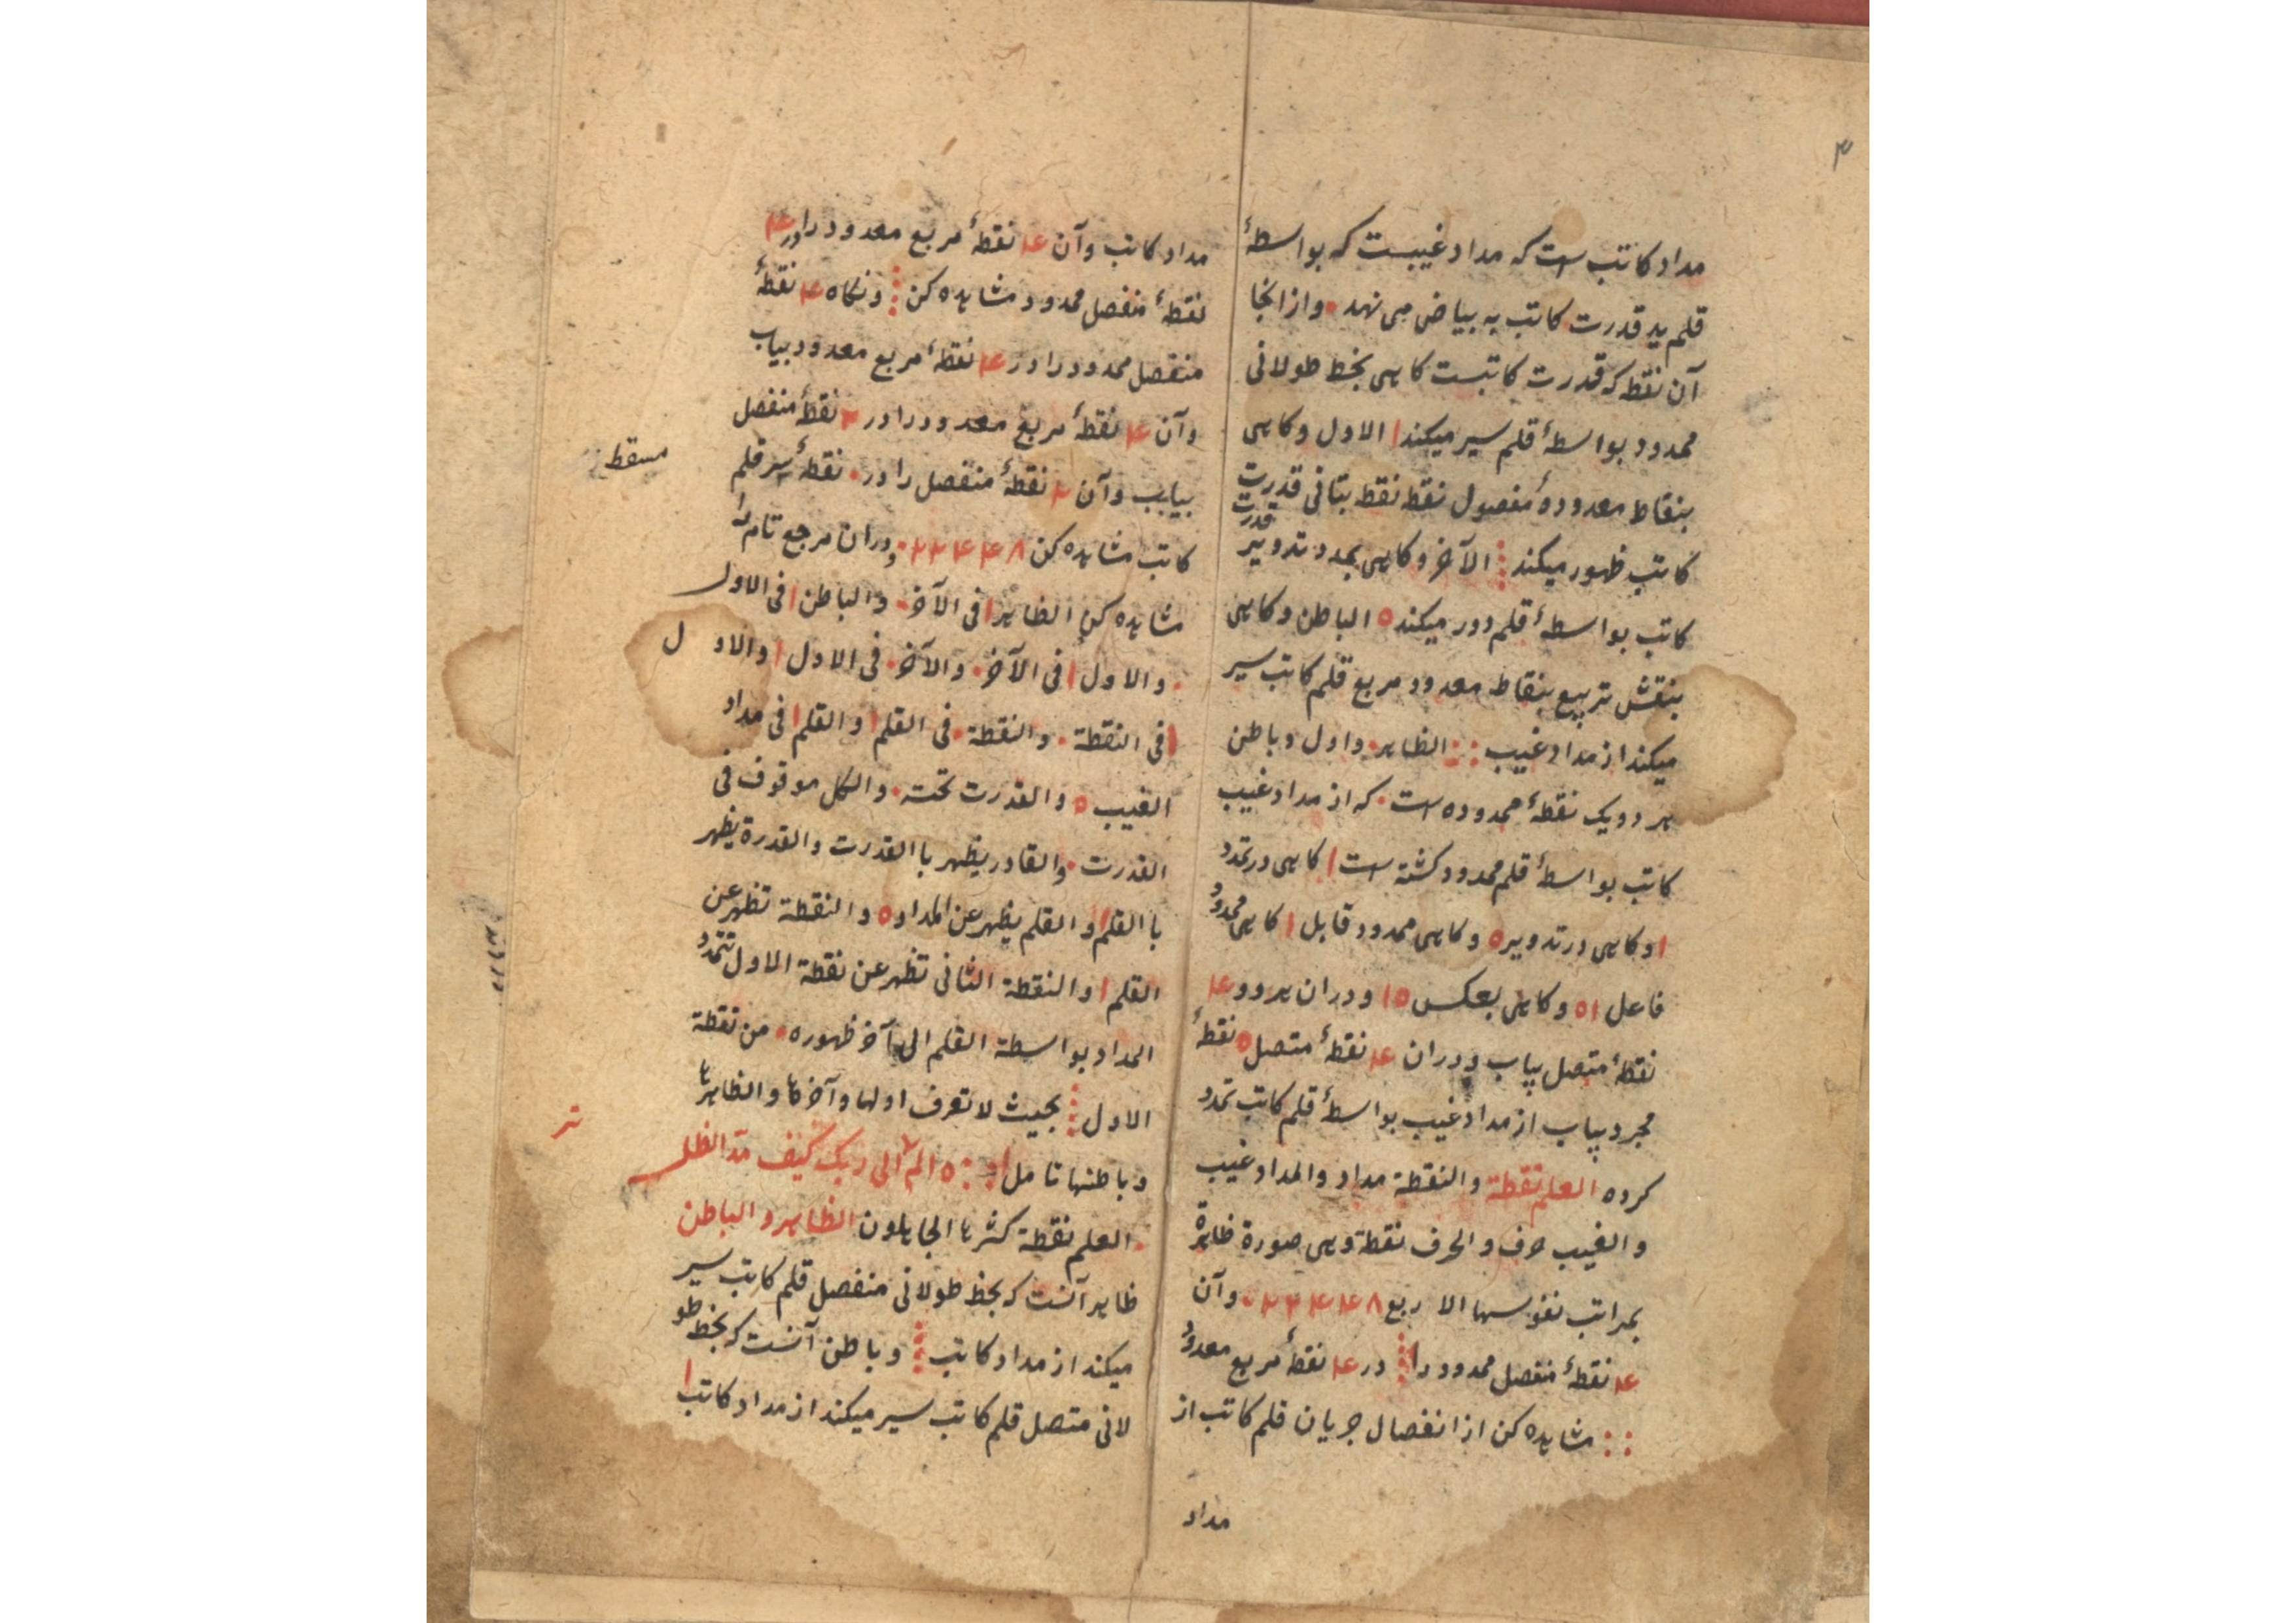 ۳
مداد کاتب است که مداد غیبست که بواسطهٔ
قلم ید قدرت کاتب به بیاض می نهد • و از انجا
آن نقطه که قدرت کاتبست کاهی بخط طولانی
محدود بواسطهٔ قلم سیر میکند ا الاول و کاهی
بنقاط معدودهٔ مفصول نقط نقط بتافی قدرت
کاتب ظهور میکند ⁞ الآخر و کاهی بمدد تدویر قدرت
کاتب بواسطهٔ قلم دور میکند ه الباطن و کاهی
بنقش تربیع بنقاط معدود مربع قلم کاتب سیر
میکند از مداد غیب :: الظاهر • و اول و باطن
هر دو یک نقطهٔ محدوده است • که از مداد غیب
کاتب بواسطهٔ قلم محدود کشته است ا کاهی در تمدد
ا و کاهی در تدویر ه و کاهی محدود قابل ا کاهی محدود
فاعل ا ه و کاهی بعکس ه ا و دران هر دو ۴
نقطهٔ متصل بیاب و دران ۴ نقطهٔ متصل ه نقطهٔ
مجرد بیاب از مداد غیب بواسطهٔ قلم کاتب تمدد
کرده العلم نقطة و النقطة مداد و المداد غیب
و الغیب حرف و الحرف نقطة و هی صورة ظاهرة
بمراتب نفوسها الاربع ۸ ۴ ۴ ۲ ۲ • و آن
۴ نقطهٔ منفصل محدود را ⁞ در ۴ نقطهٔ مربع معدود
:: مشاهده کن از انفصال جریان قلم کاتب از
مداد
مداد کاتب و آن ۴ نقطهٔ مربع معدود را در ۴
نقطهٔ منفصل محدود مشاهده کن ⁞ و نکاه ۴ نقطهٔ
منفصل محدود را در ۴ نقطهٔ مربع معدود بیاب
و آن ۴ نقطهٔ مربع معدود را در ۲ نقطهٔ منفصل
بیاب و آن ۲ نقطهٔ منفصل را در • نقطهٔ سر قلم
مسقط
کاتب مشاهده کن ۸ ۴ ۴ ۲ ۲ • و دران مرجع تام را
مشاهده کن الظاهر ا فی الآخر • و الباطن ا فی الاول
• و الاول ا فی الآخر • و الآخر • فی الاول ا و الاول
ا فی النقطة • و النقطة • فی القلم ا و القلم ا فی مداد
الغیب ه و القدرت تحته • و الکل موقوف فی
القدرت • و القادر یظهر با القدرت و القدرة یظهر
با القلم ا و القلم یظهر عن المداد ه و النقطة تظهر عن
القلم ا و النقطة الثانی تظهر عن نقطة الاول تتمدد
المداد بواسطة القلم الی آخر ظهوره • من نقطة
الاول ⁞ بحیث لا تعرف اولها و آخرها و الظاهرها
و باطنها تامل ا :: ه الم تر الی ربک کیف مد الظل
• العلم نقطة کثرها الجاهلون الظاهر و الباطن
ظاهر آنست که بخط طولانی منفصل قلم کاتب سیر
میکند از مداد کاتب ⁞ و باطن آنست که بخط طو
لانی متصل قلم کاتب سیر میکند از مداد کاتب ا
تر